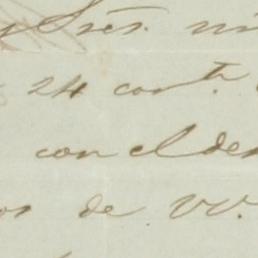 y Sres. mi
24 cort.
con el de
os de VV.